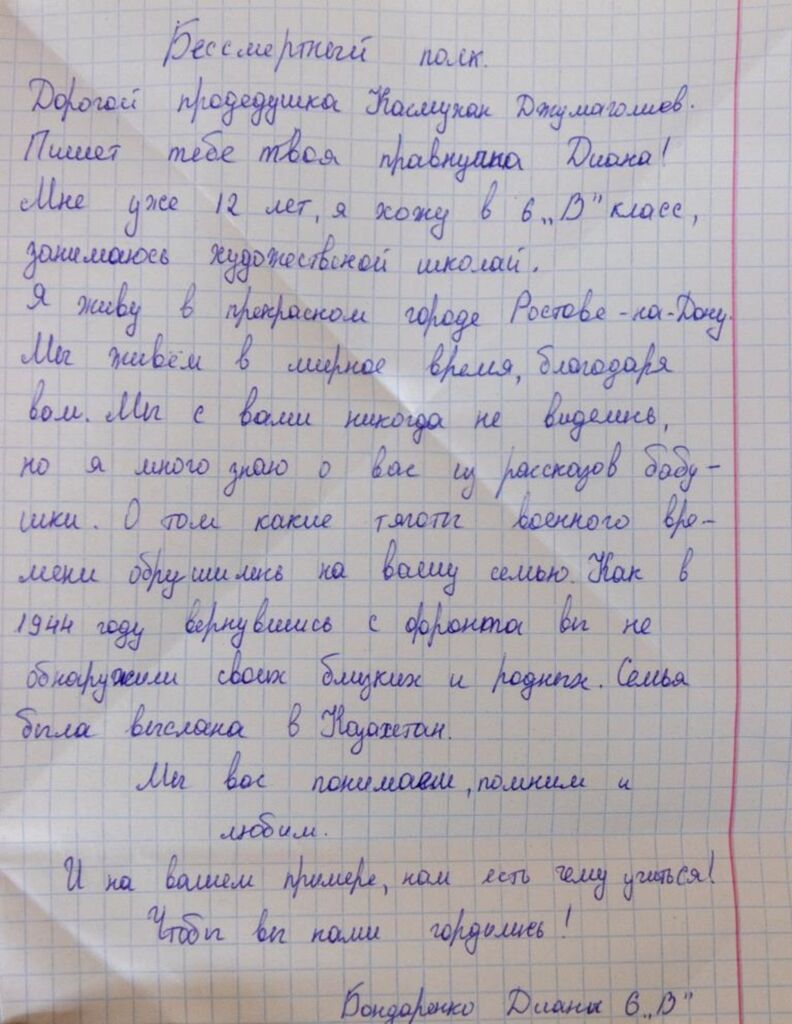 Бессмертный полк.
Дорогой продедушка Касмухан Джумаголиев.
Пишет тебе твоя правнучка Диана!
Мне уже 12 лет, я хожу в 6 „В" класс,
занимаюсь художественой школай.
Я живу в прекрасном городе Ростове-на-Дону.
Мы живём в мирное время, благодаря
вам. Мы с вами никогда не виделись,
но я много знаю о вас из рассказов бабу-
шки. О том какие тяготы военного вре-
мени обрушились на вашу семью. Как в
1944 году вернувшись с фронта вы не
обнаружили своих близких и родных. Семья
была выслана в Казахстан.
Мы вас понимаем, помним и
любим.
И на вашем примере, нам есть чему учиться!
Чтобы вы нами гордились!
Бондаренко Диана 6 „В"